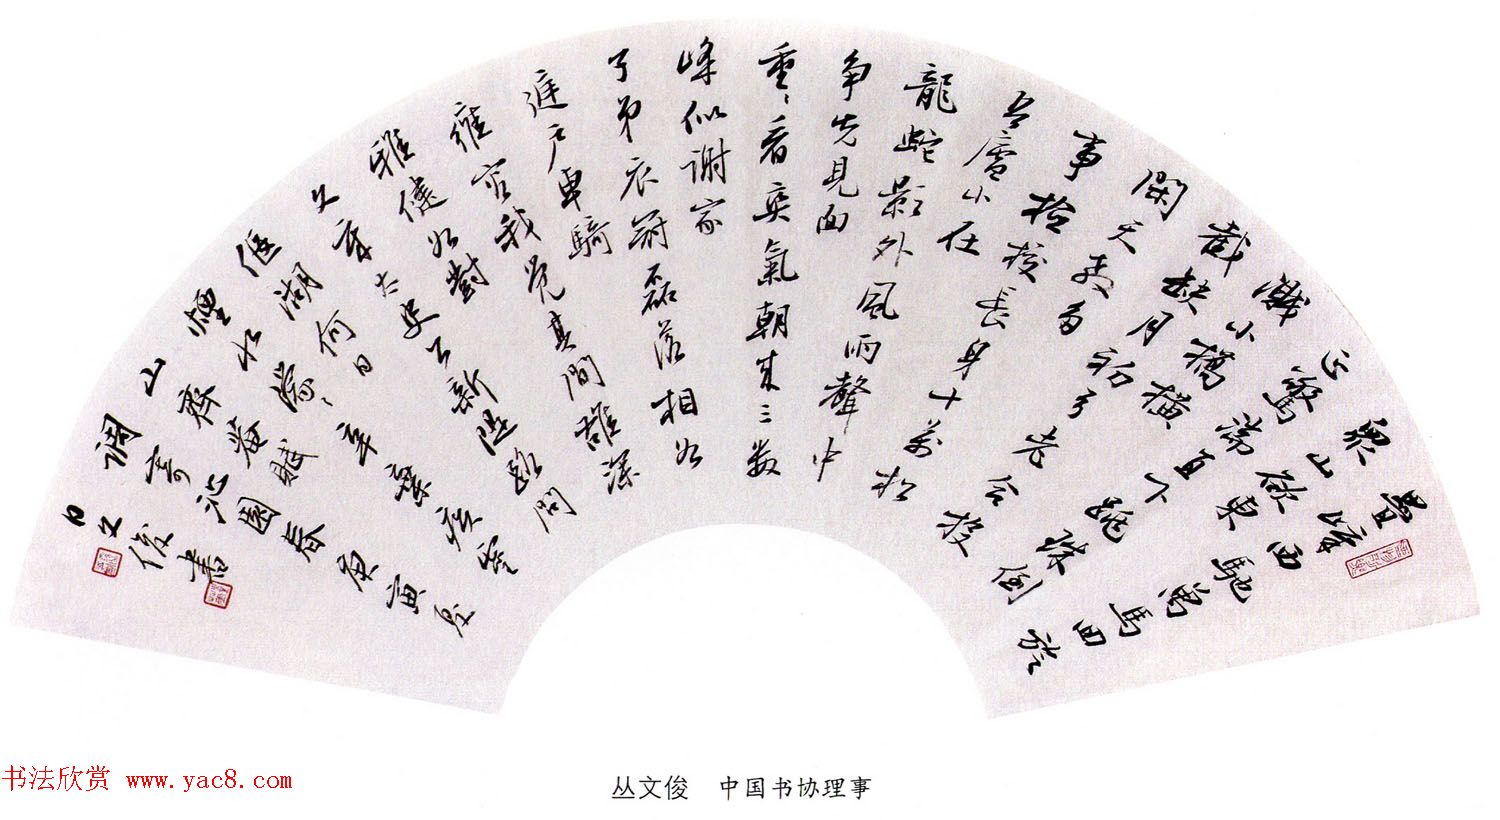 疊嶂西馳萬馬回旋
眾山欲東
正驚湍直下跳珠倒
濺小橋橫
截缺月初弓老合投
閑天教多
事檢校長身十萬松
吾廬小在
龍蛇影外風雨聲中
爭先見面
重〻看爽氣朝來三數
峰似謝家
子弟衣冠磊落相如
庭戶車騎
雍容我覺其間雄深
雅健如對
文章太史公新堤路問
偃湖何日
煙水濛〻辛棄疾靈
山齊菴賦
調寄沁園春庚寅夏
月文俊書
书法欣赏 www.yac8.com
丛文俊 中国书协理事